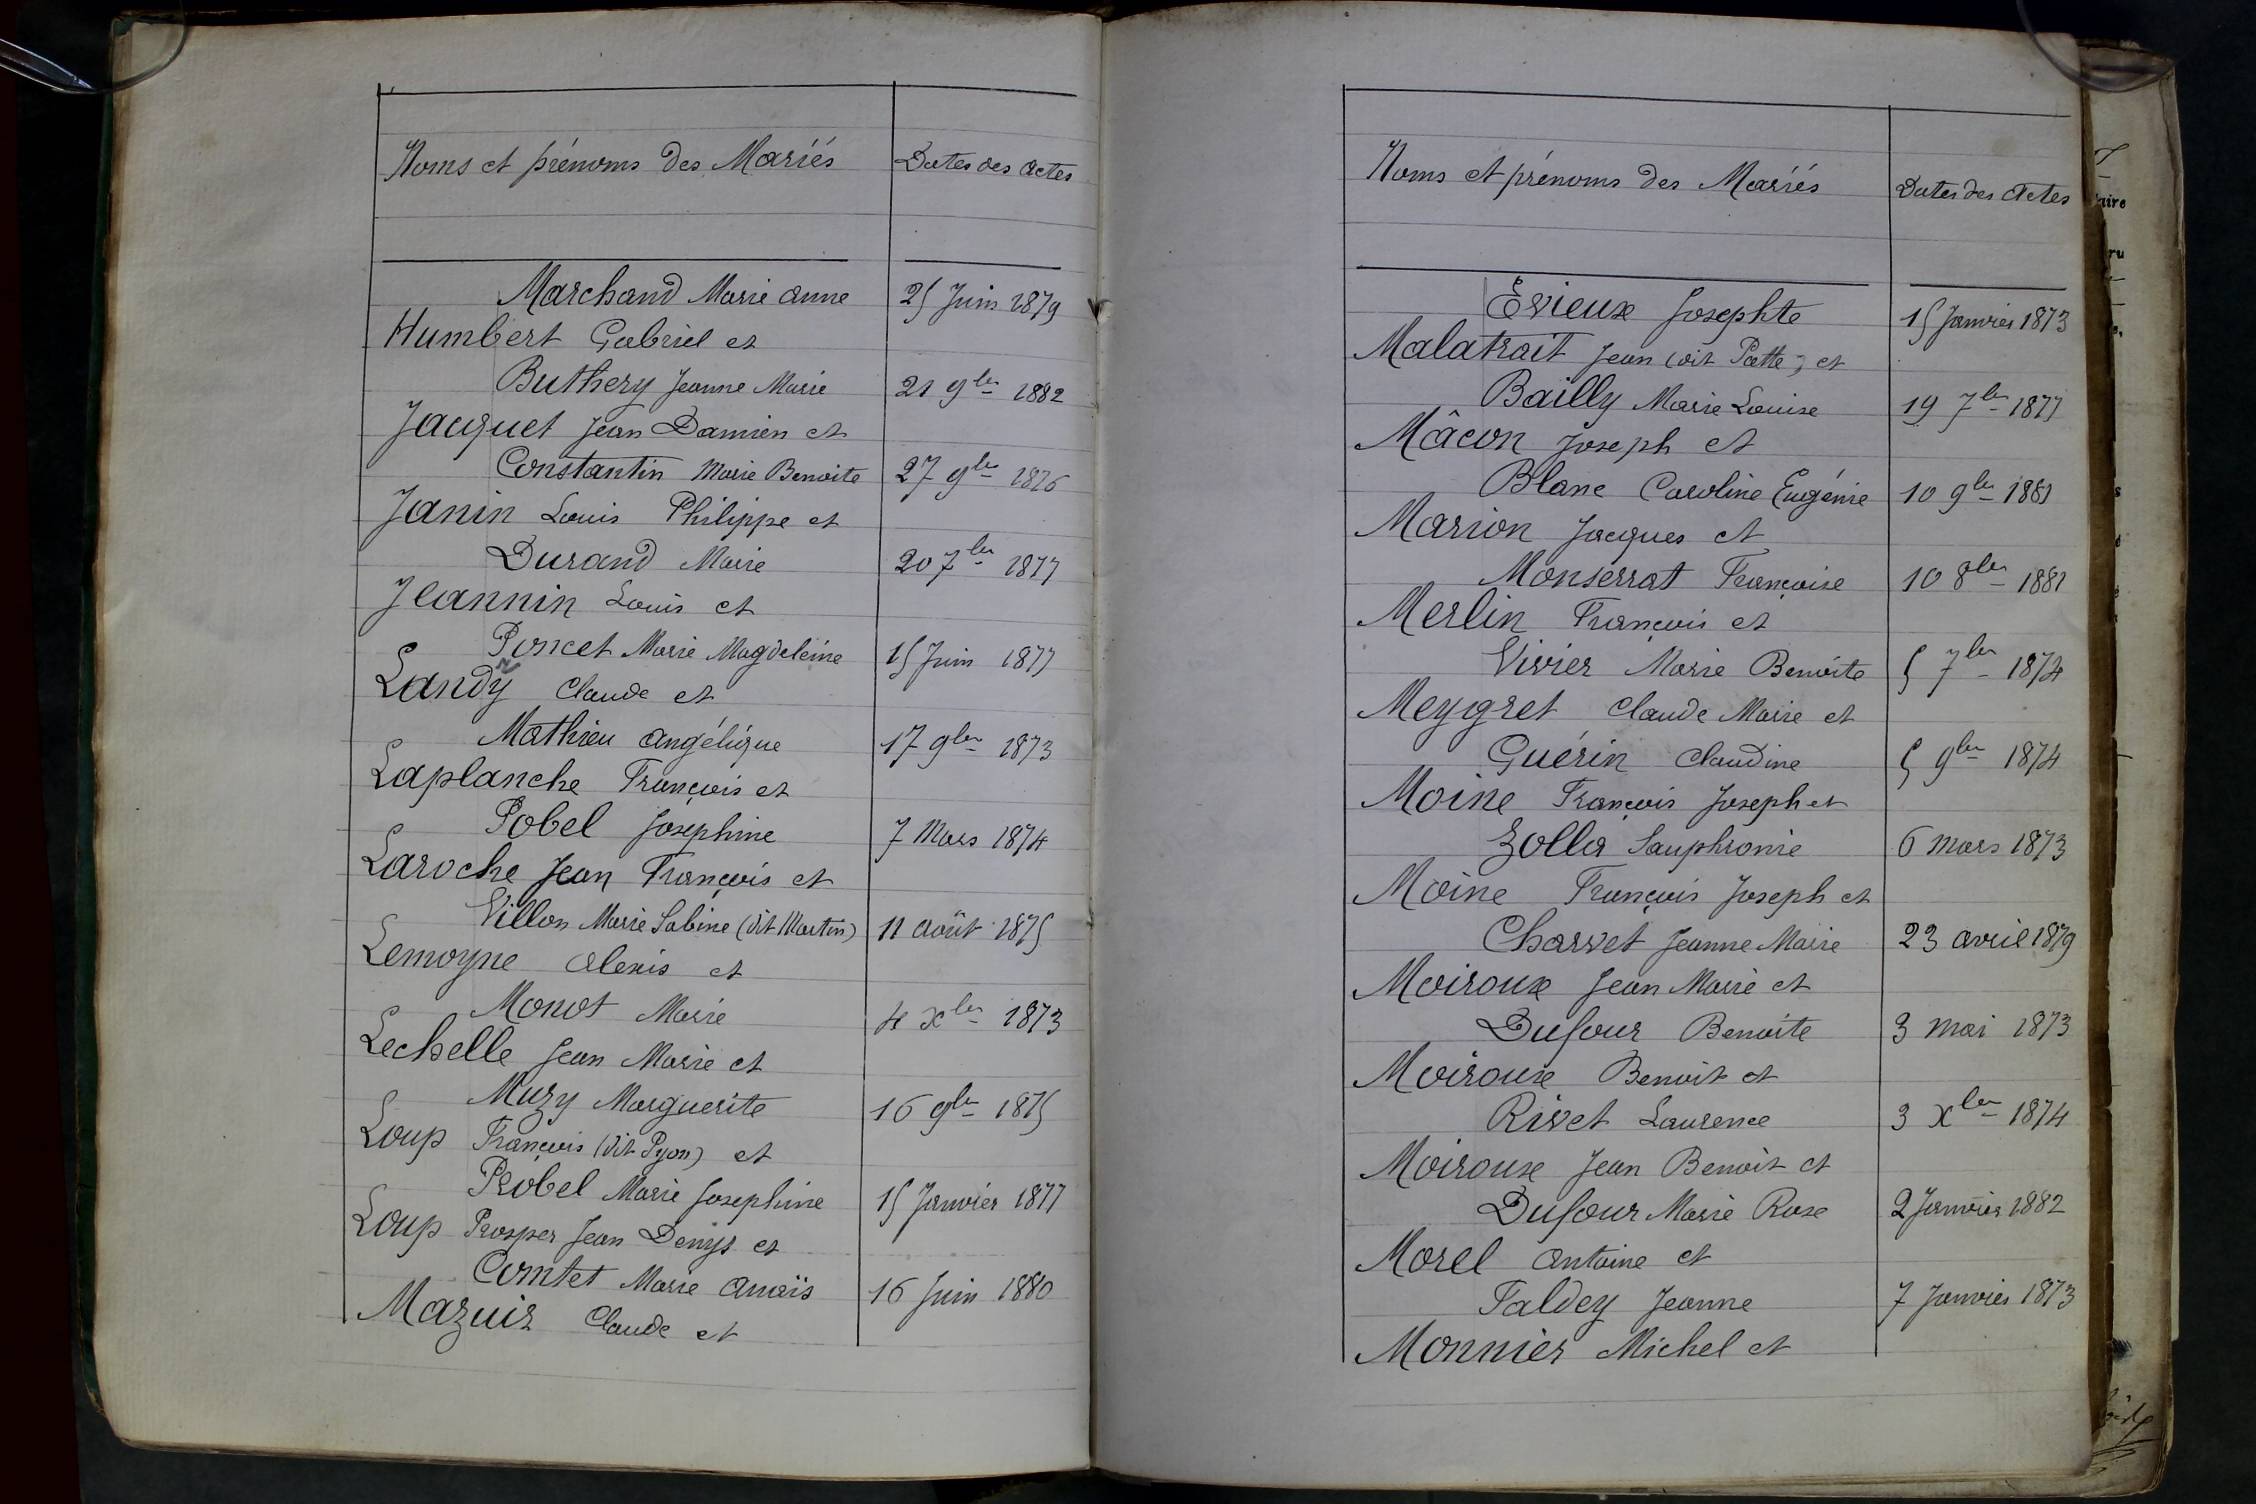 Noms et prénoms des Mariés
Dates des actes
Marchand Marie Anne 25 Juin 1879
Humbert Gabriel et
Buthery Jeanne Marie 21 9bre 1882
Jacquet Jean Damien et
Constantin Marie Benoite 27 9bre 1876
Janin Louis Philippe et
Durand Marie 20 7bre 1877
Jeannin Louis et
Poncet Marie Magdeleine 15 Juin 1877
Landy Claude et
Mathieu Angélique 17 9bre 1873
Laplanche François et
Pobel Josephine 7 Mars 1874
Laroche Jean François et
Villon Marie Sabine (dit Martin) 11 Août 1875
Lemoyne Alexis et
Monot Marie 4 xbre 1873
Lechelle Jean Marie et
Muzy Marguerite 16 9bre 1875
Loup François (dit Pyon) et
Probel Marie Josephine 15 Janvier 1877
Loup Prosper Jean Denys et
Comtet Marie Anaïs 16 Juin 1880
Mazuir Claude et
Noms et prénoms des Mariés
Dates des Actes
Evieux Josephte 15 Janvier 1873
Malatrait Jean (dit Patte) et
Bailly Marie Louise 19 7bre 1877
Mâcon Joseph et
Blanc Caroline Eugénie 10 9bre 1881
Marion Jacques et
Monserrat Françoise 10 8bre 1881
Merlin François et
Vivier Marie Benoite 5 7bre 1874
Meygret Claude Marie et
Guérin Claudine 5 9bre 1874
Moine François Joseph et
Zolla Sauphronie 6 mars 1873
Moine François Joseph et
Charvet Jeanne Marie 23 avril 1879
Moiroux Jean Marie et
Dufour Benoite 3 mai 1873
Moiroux Benoit et
Rivet Laurence 3 Xbre 1874
Moiroux Jean Benoit et
Dufour Marie Rose 2 Janvier 1882
Morel Antoine et
Taldey Jeanne 7 Janvier 1873
Monnier Michel et